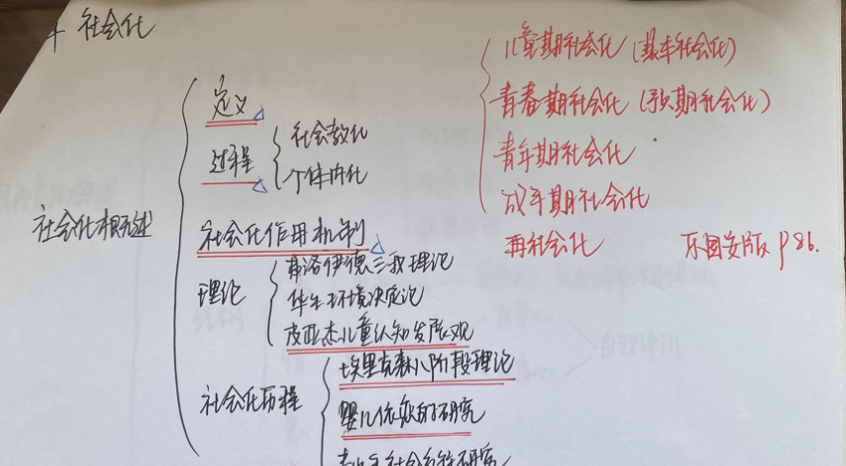 社会化
定义
过程
社会教化
个体内化
社会化概述
社会化作用机制
理论
弗洛伊德三我理论
华生环境决定论
皮亚杰儿童认知发展观
社会化历程
埃里克森八阶段理论
婴儿依恋的研究
儿童期社会化(基本社会化)
青春期社会化(预期社会化)
青年期社会化
成年期社会化
再社会化 乐国安版 P86.